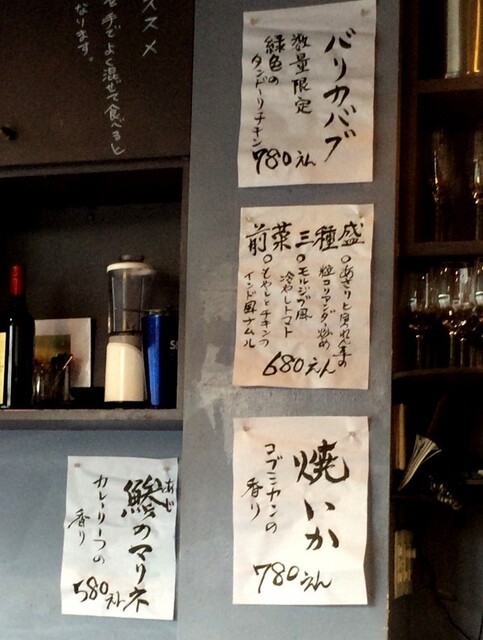 ススメ
を手でよく混ぜて食べると
なります。
バリカバブ
数量限定
緑色の
タンドーリチキン
780えん
前菜三種盛
○あさりとほうれん草の
粒コリアンダー炒め
○モルジブ風
冷やしトマト
○もやしとチキンの
インド風ナムル
680えん
焼いか
コブミカンの
香り
780えん
あじ
鯵のマリネ
カレーリーフの
香り
580えん